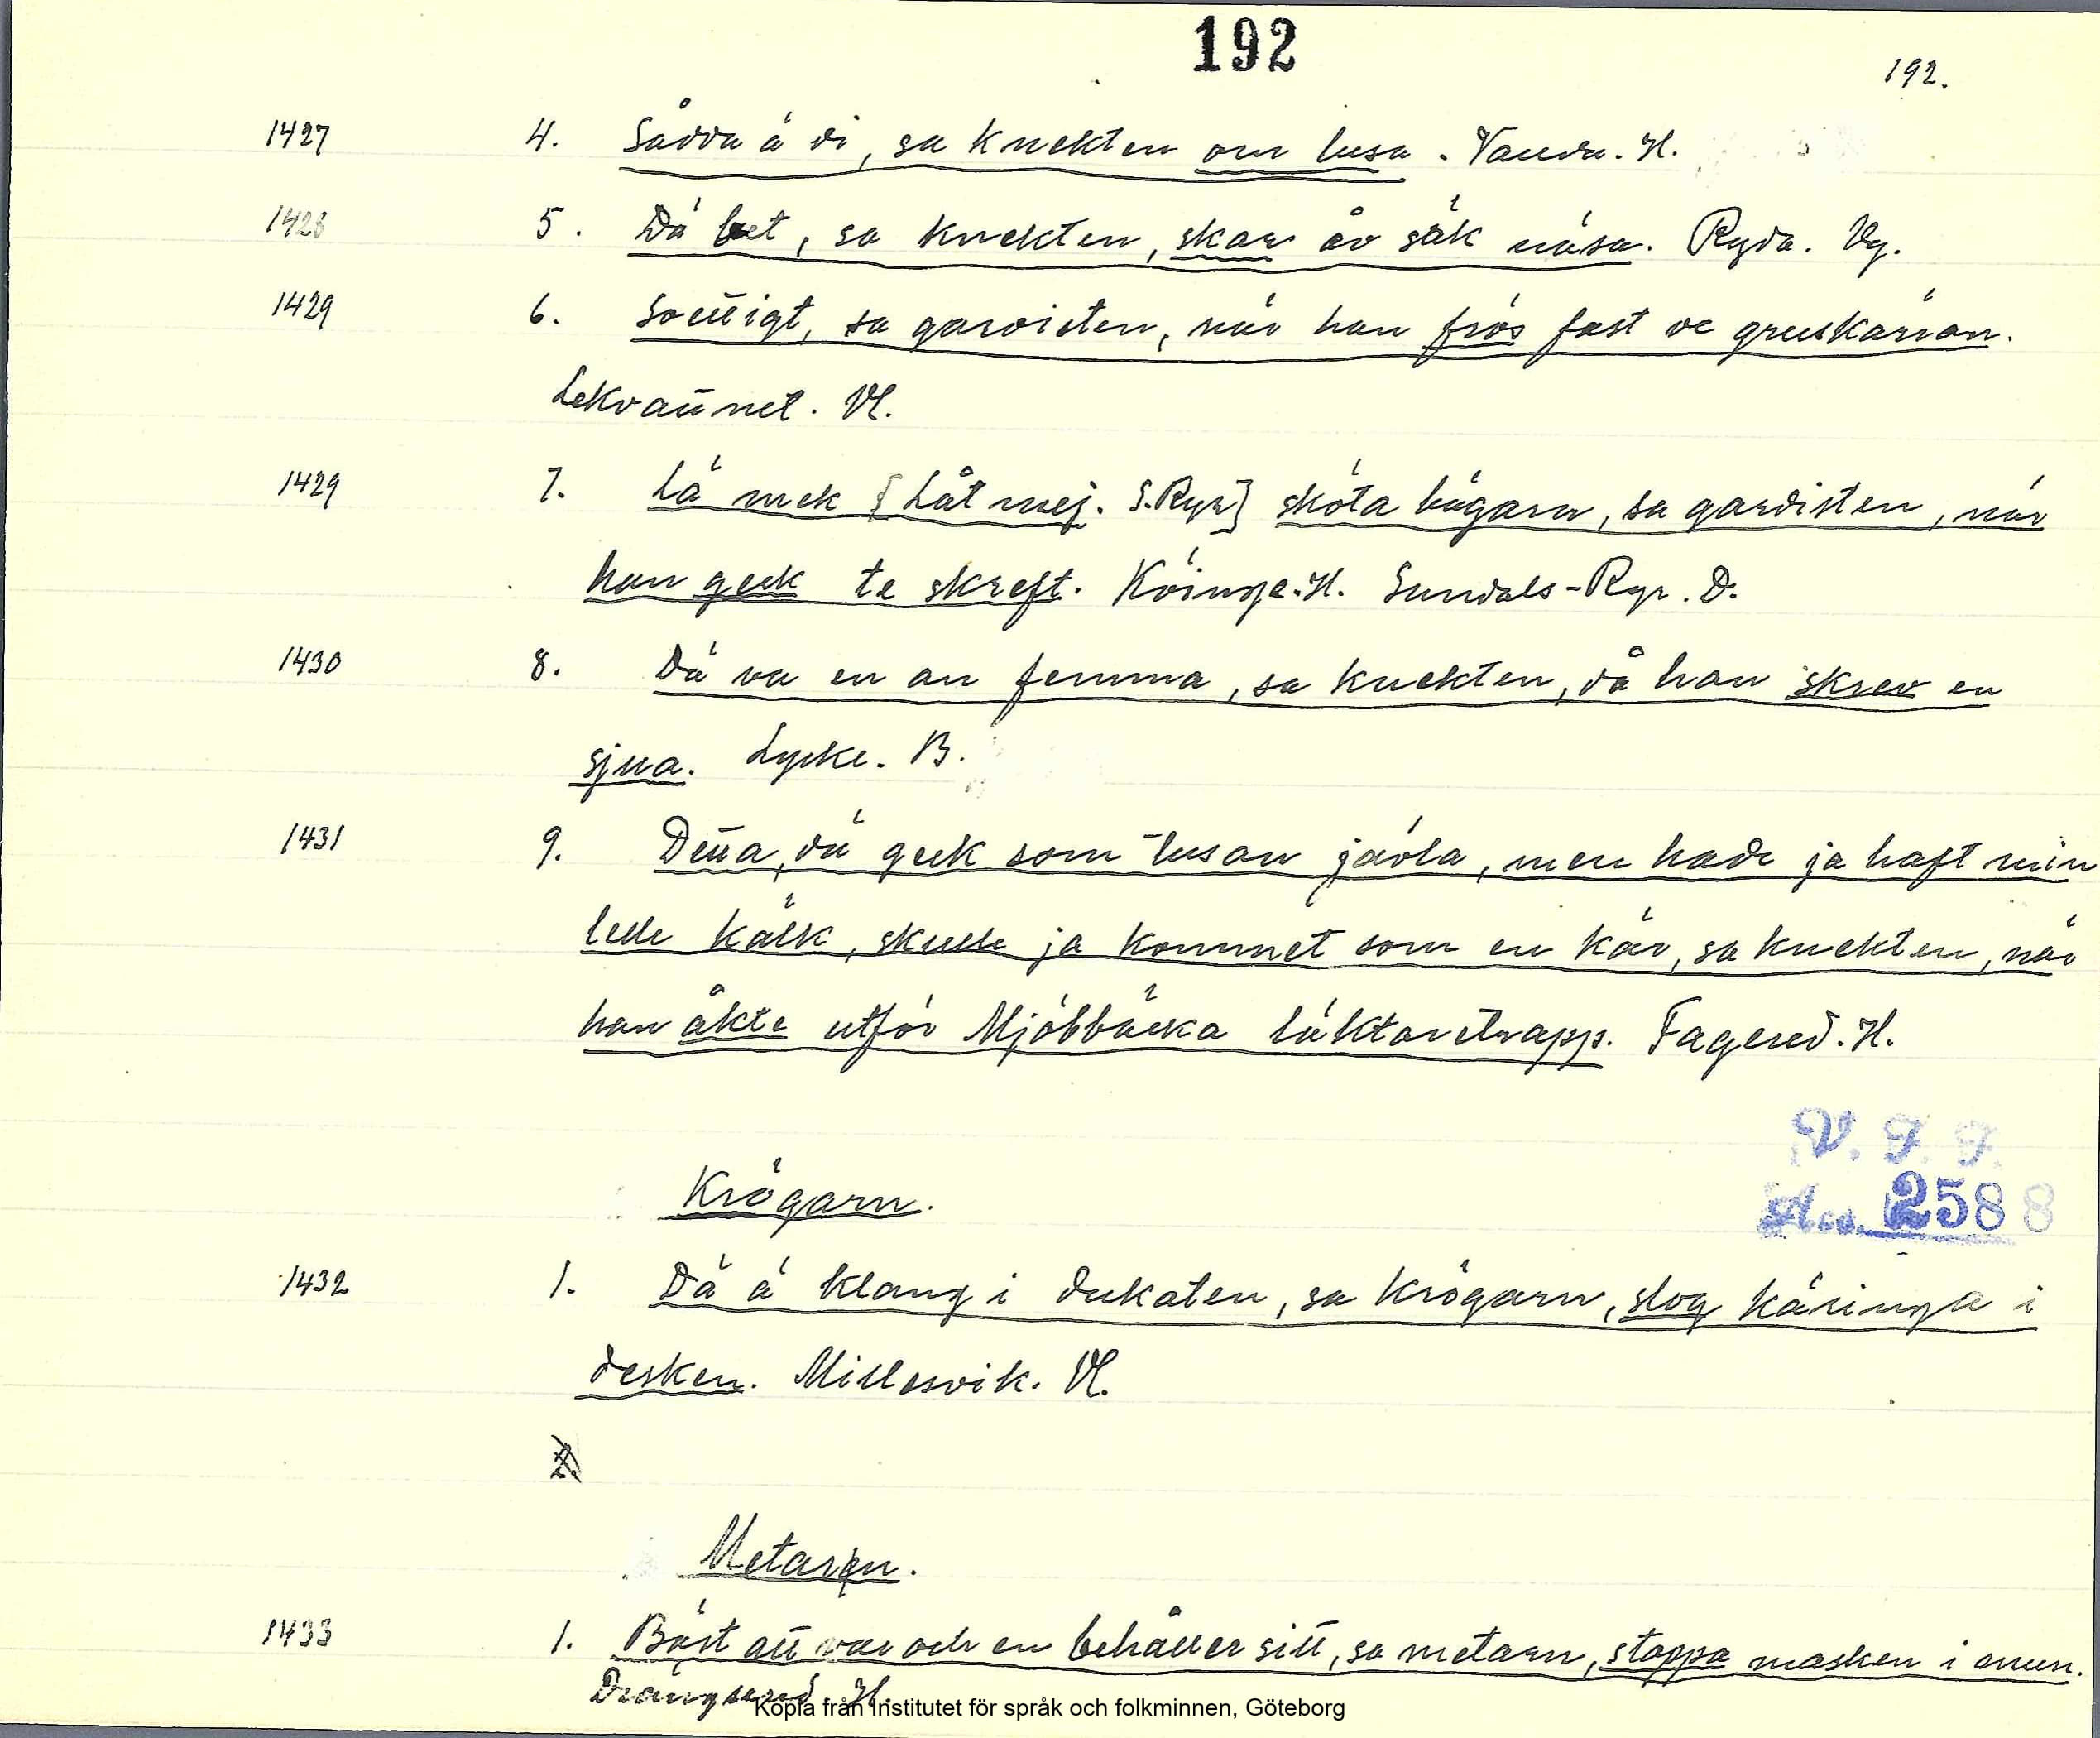 192
192.
1427 4. Sådda ä di, sa knekten om lusa. Vanda. H.
1428 5. Dä bet, sa knekten, skar åv säk näsa. Ryda. Vg.
1429 6. Sottigt, sa gardisten, när han frös fast ve gruskärran.
Lekvattnet. Vl.
1429 7. Lä mek [Låt mej. S.Ryr] sköta bögarn, sa gardisten, när
han geck te skreft. Köinge. H. Sundals-Ryr. D.
1430 8. Dä va en an femma, sa knekten, då han skrev en
sjua. Lycke. B.
1431 9. Detta, dä geck som tusan jävla, men hade ja haft min
lelle kälk, skulle ja kommet som en kär, sa knekten, när
han åkte utför Mjöbbäcka läktaretrapp. Fagered. H.
V. F. F.
Acc. 2588
Krögarn.
1432 1. Dä ä klang i dukaten, sa krögarn, slog käringa i
desken. Millesvik. Vl.
2.
Metarn.
1433 1. Bäst att var och en behåller sitt, sa metarn, stoppa masken i mun.
Drängsered. H.
Kopia från Institutet för språk och folkminnen, Göteborg